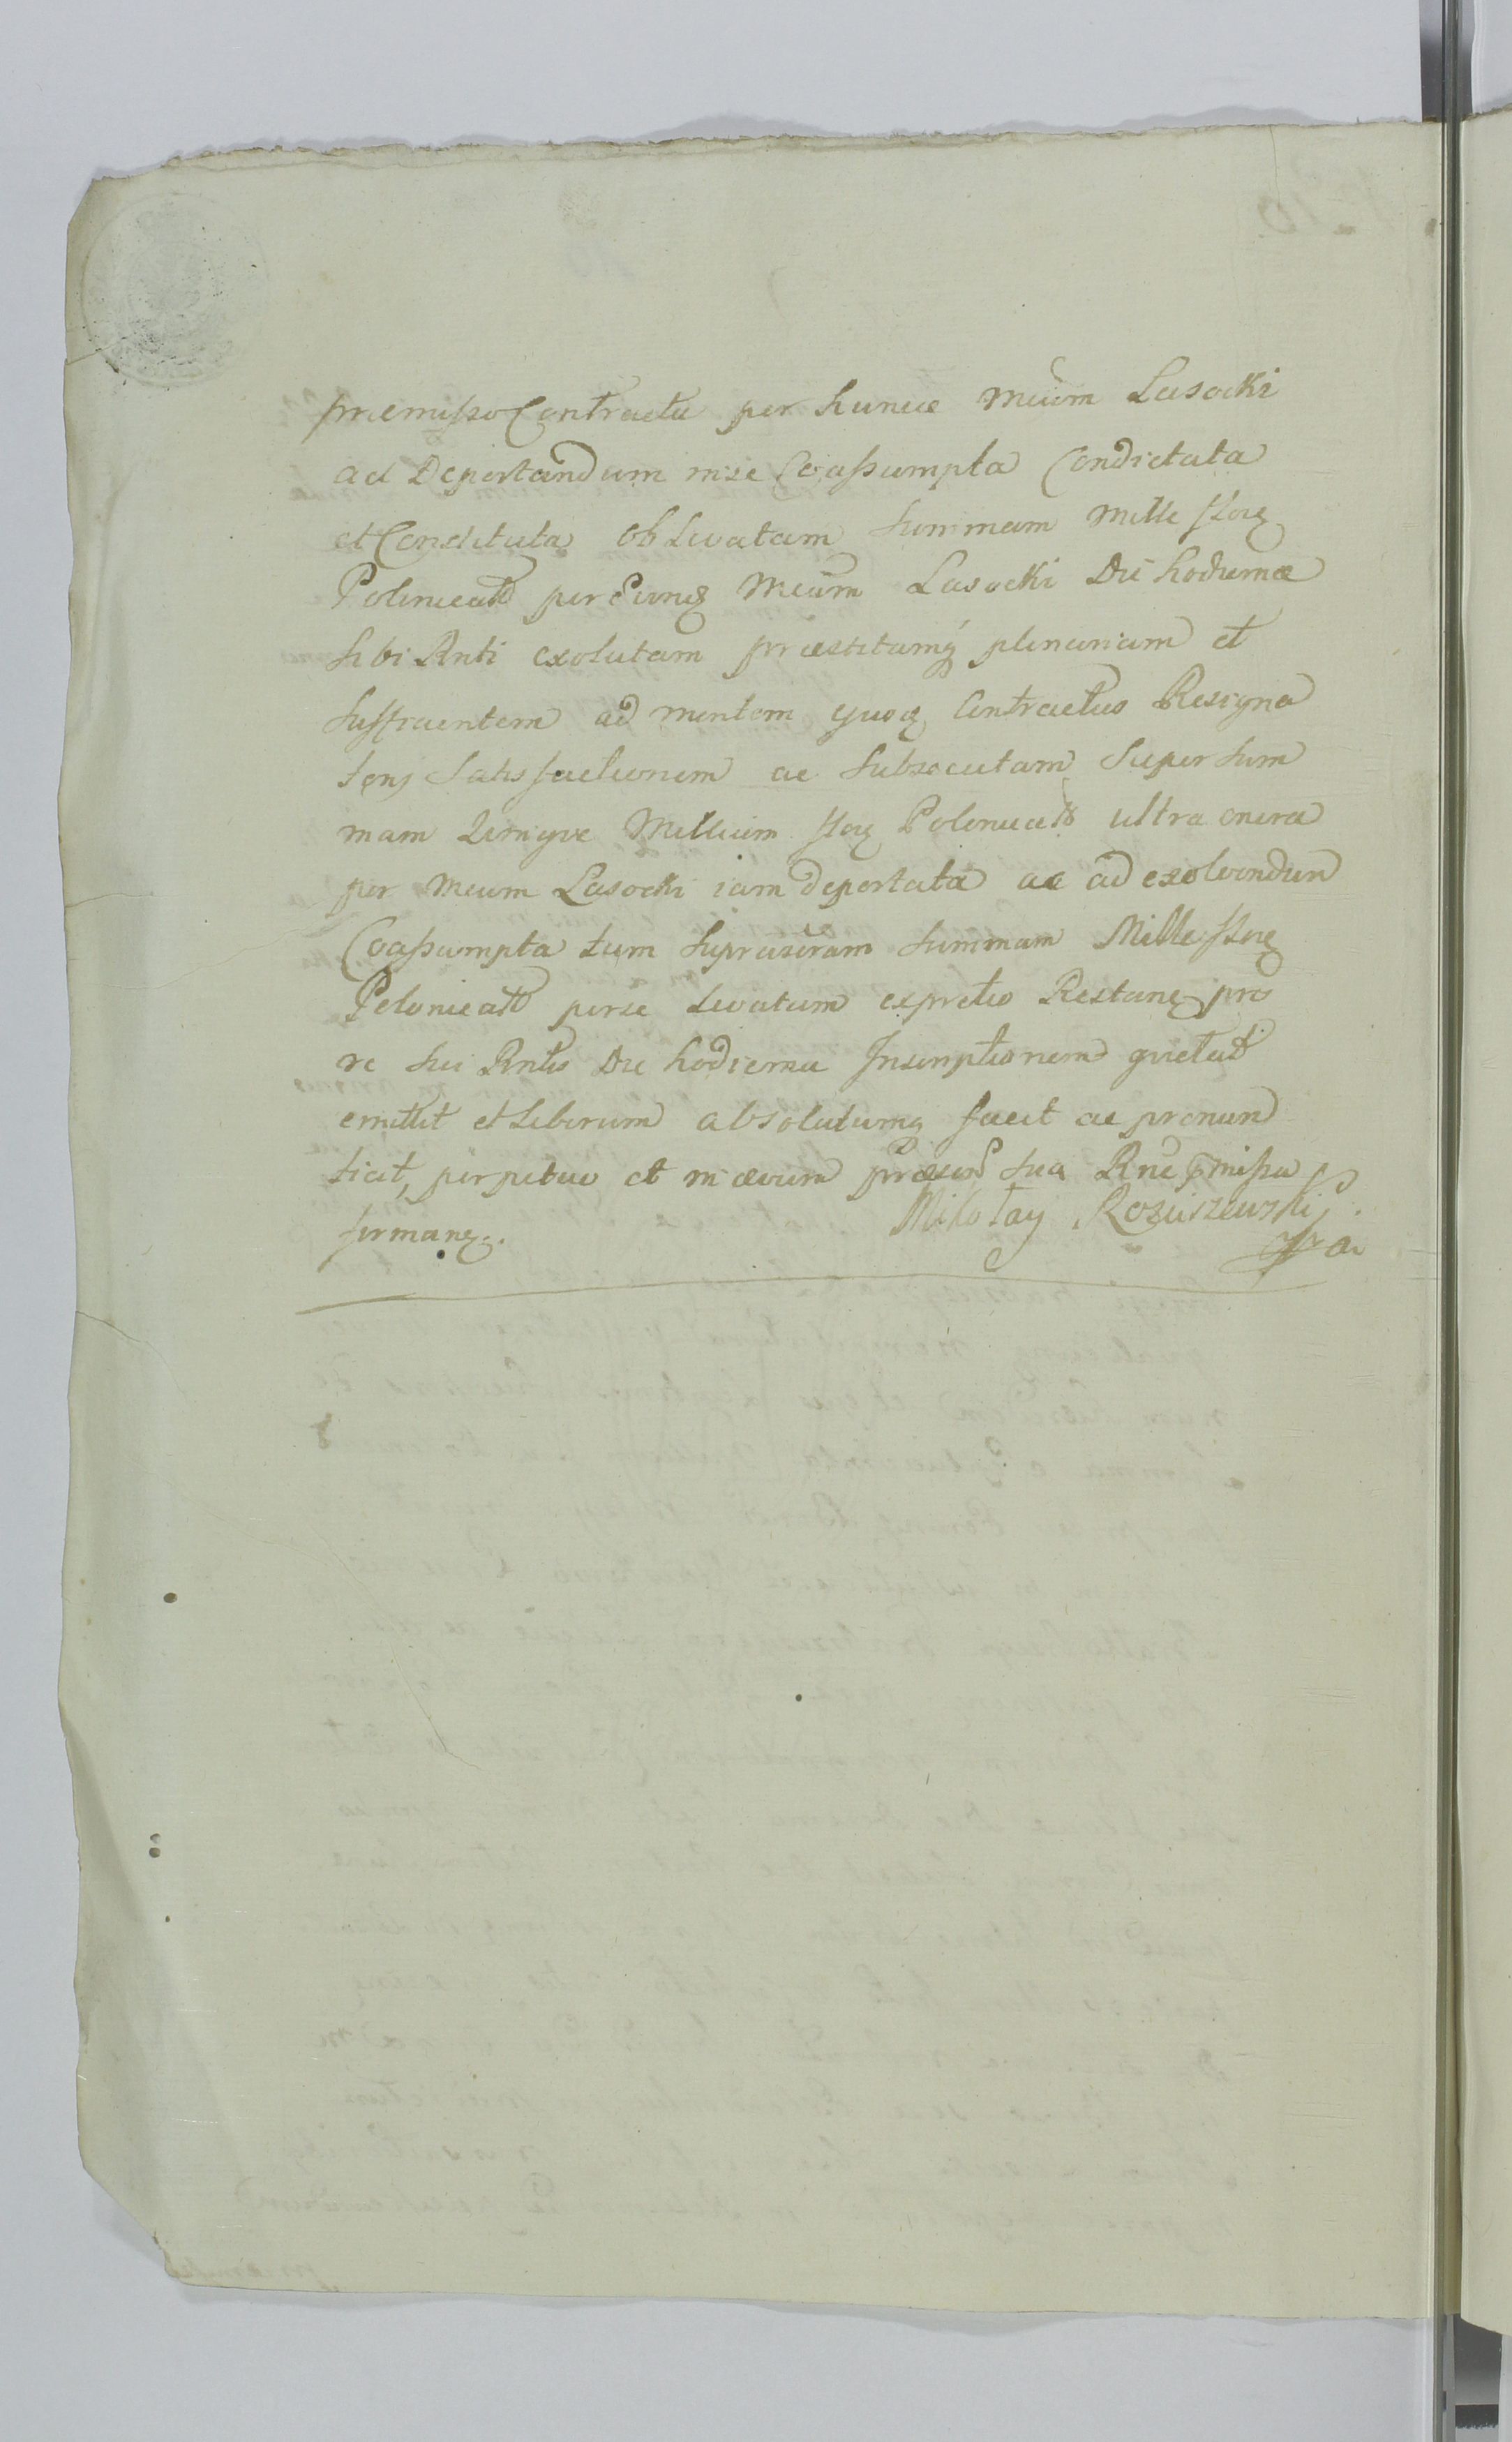 præmisso Contractu per hunce Mcum Lasocki
ad Deportandum in se Coassumpta Condictata
et Constituta ob Levatam summam Mille flor
Polonical per Eund Mcum Lasocki Die hodierna
sibi Rnti exolutam præstitamq plenariam et
sufficientem ad mentem quoq Contractus Resigna
tonis satisfactionem ac subsecutam super sum
mam Quinque Millium flor Polonical ultra onera
per Mcum Lasocki iam deportata ac ad exolvendum
Coassumpta tum suprascram summam Mille flor
Polonical per se Levatam ex pretio Restan pro
re sui Rntis Die hodierna Inscriptionem quietat
emittit et Liberum absolutumq facit ac pronun
tiat, perpetuo et in ævum præsen sua Rne pmissa
firman.
Mikołay Rożniszewski